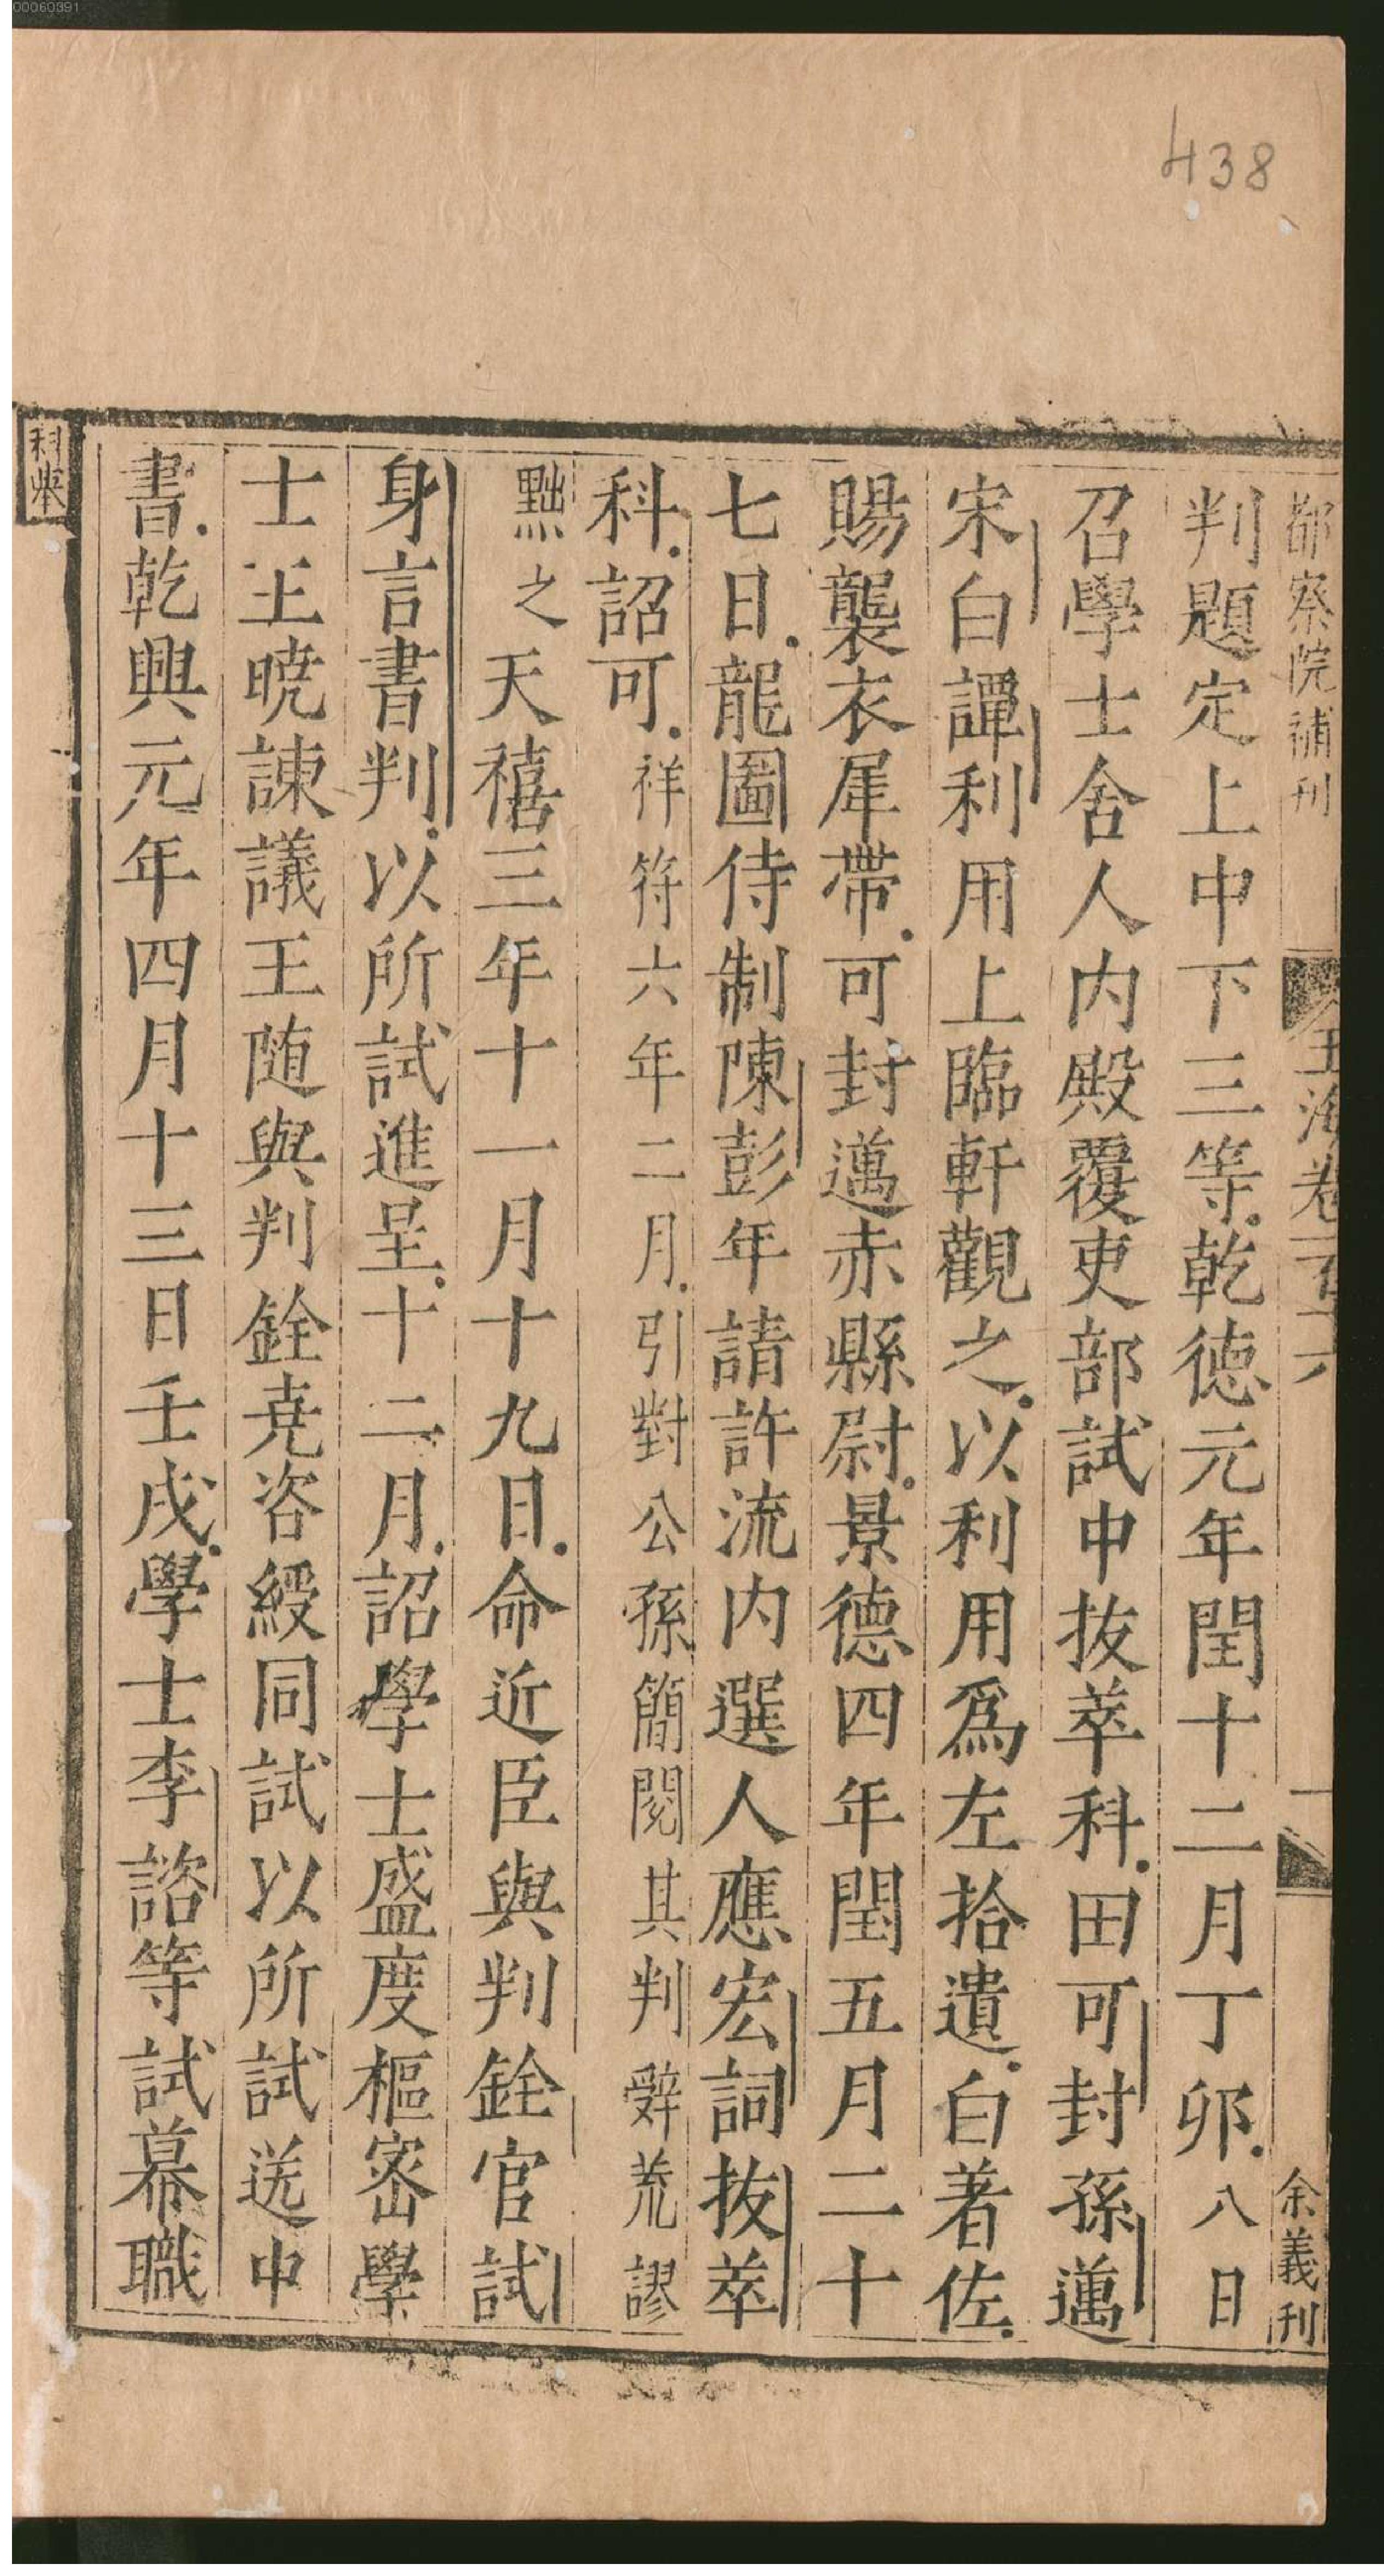 00060391
438
都察院補刊
玉海卷一百一六
一
余義刊
判題定上中下三等乾徳元年閏十二月丁卯八日
召學士舍人内殿覆吏部試中拔萃科田可封孫邁
宋白譚利用上臨軒觀之以利用爲左拾遺白著佐
賜襲衣犀帶可封邁赤縣尉景德四年閏五月二十
七日龍圖侍制陳彭年請許流内選人應宏詞拔萃
科詔可祥符六年二月引對公孫簡閱其判辤荒謬
黜之天禧三年十一月十九日命近臣與判銓官試
身言書判以所試進呈十二月詔學士盛度樞宻學
士王暁諌議王随與判銓尭咨綬同試以所試送中
書乾興元年四月十三日壬戌學士李諮等試幕職
科舉